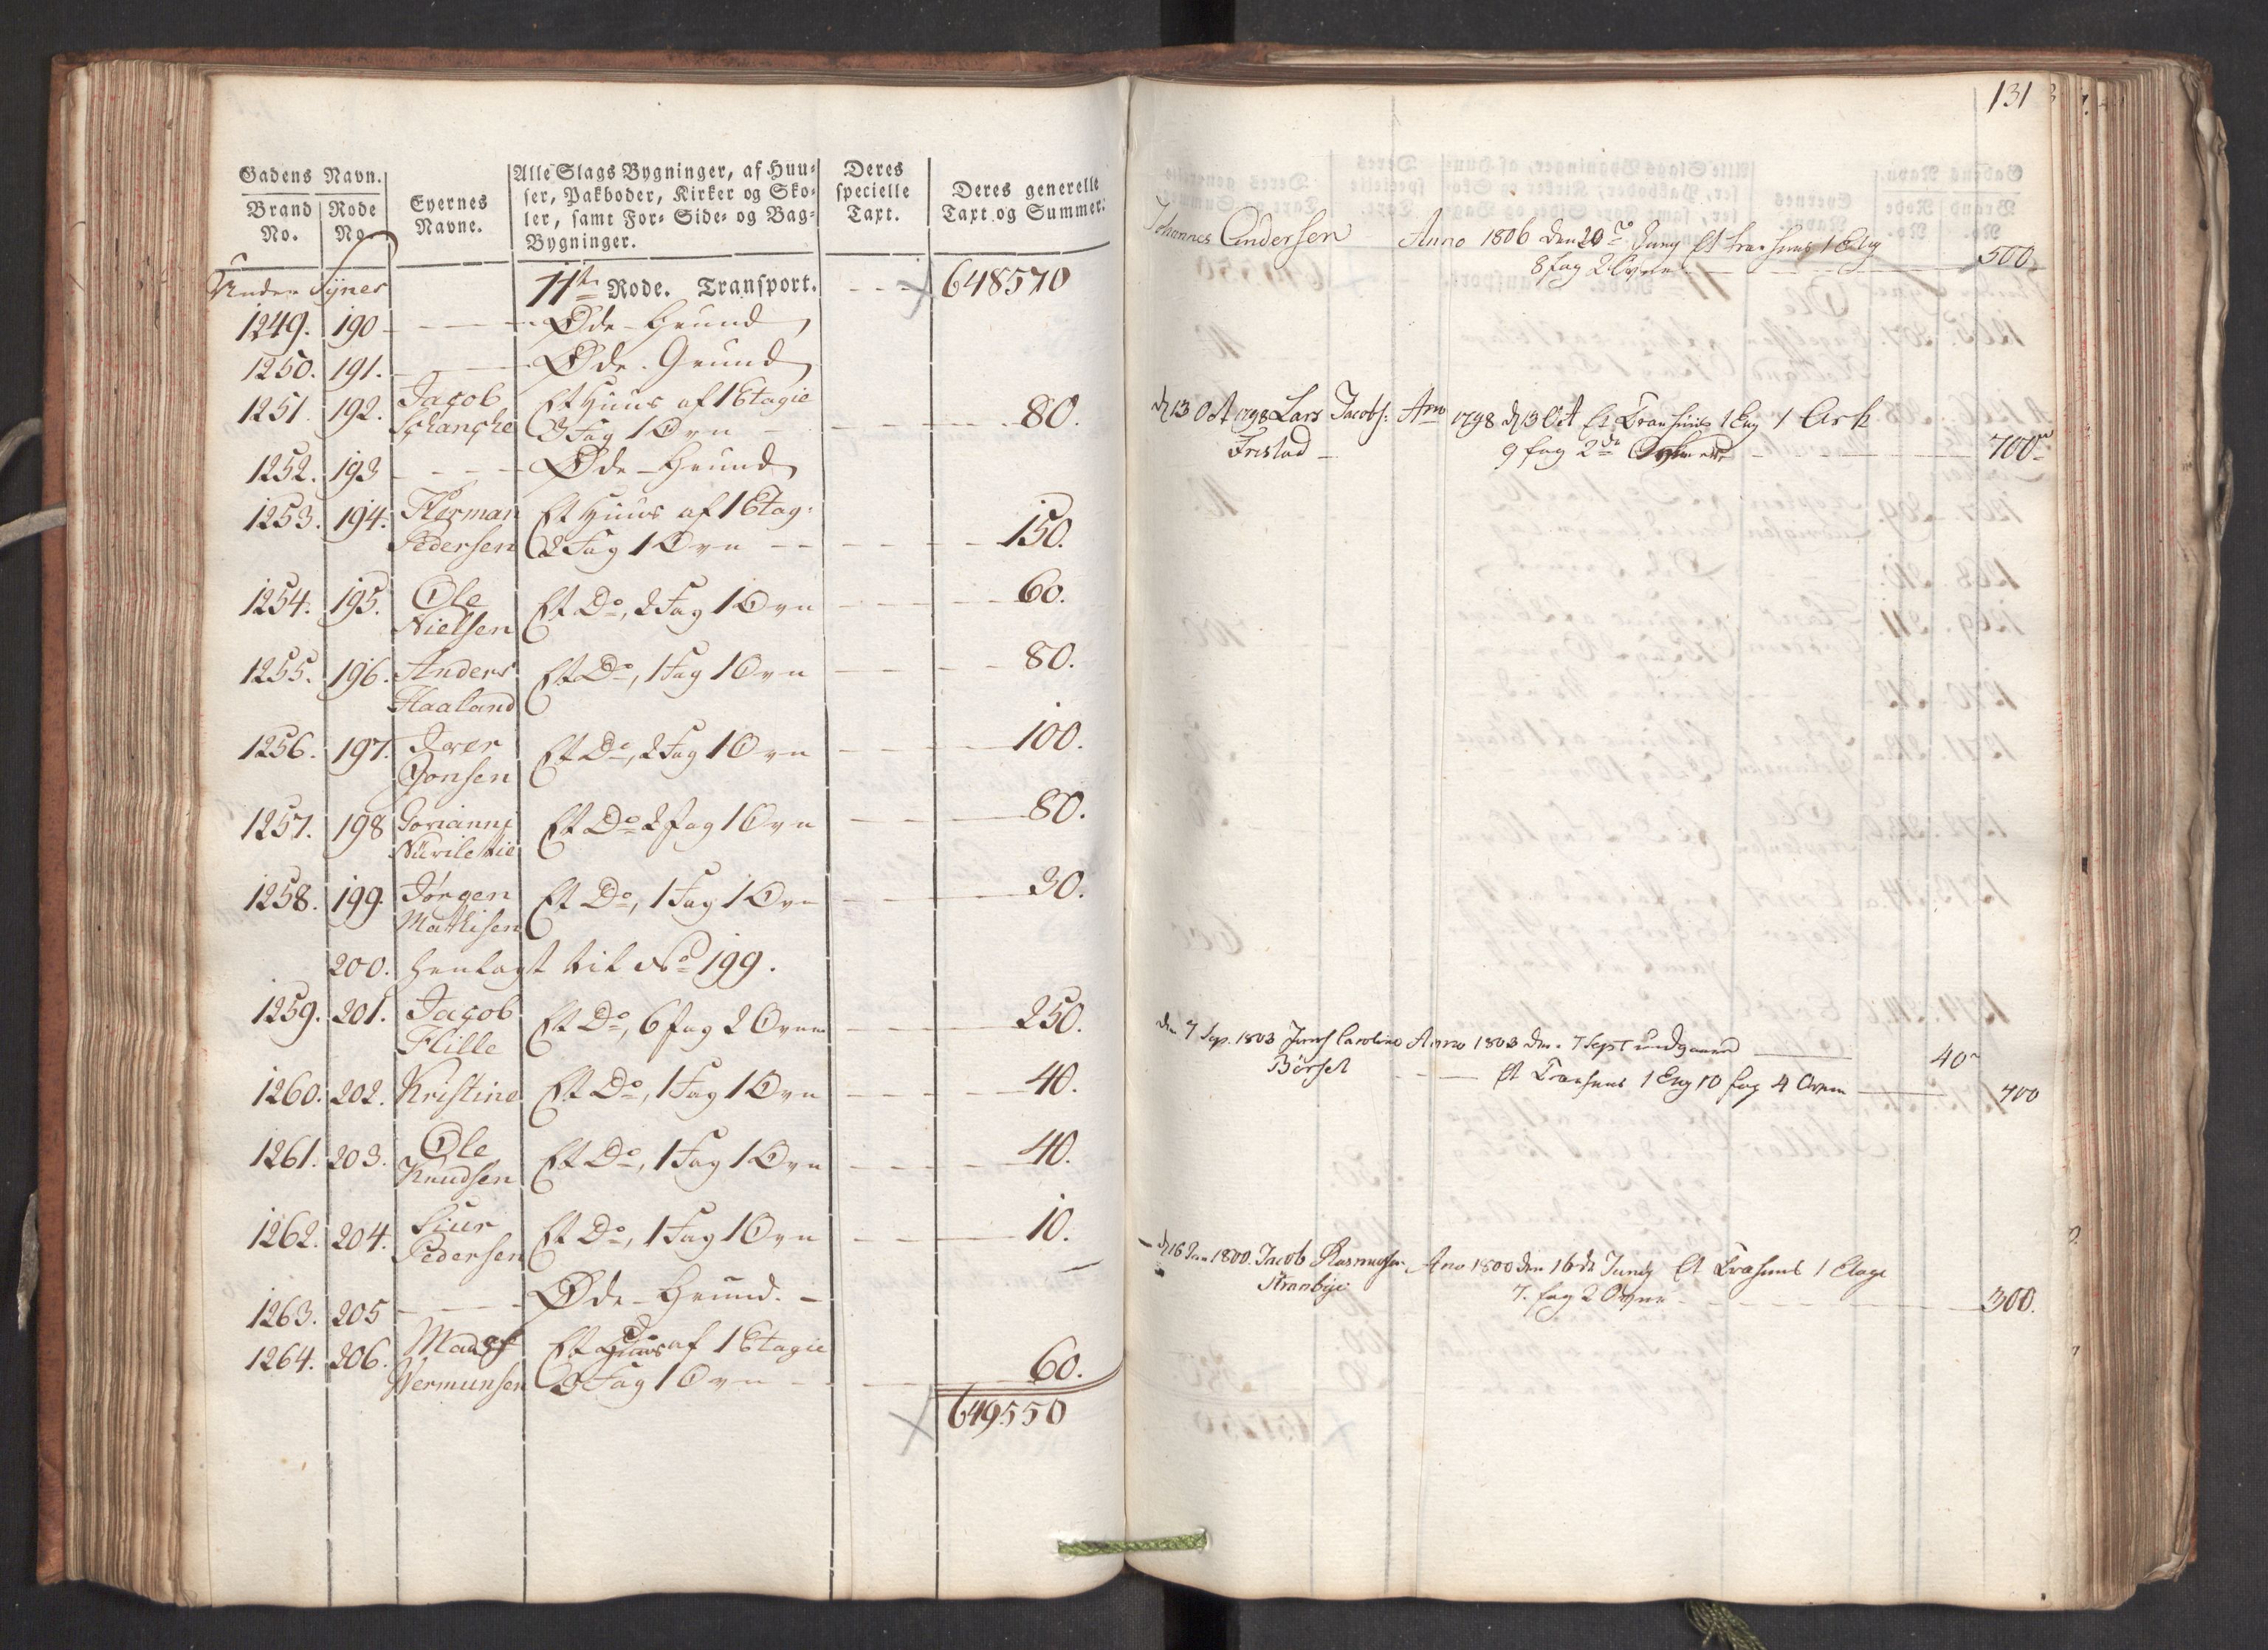 Gadens Navn.
Brand No. Rode No.
Eyernes Navne.
Alle Slags Bygninger, af Huu-
ser, Pakboder, Kirker og Sko-
ler, samt For- Side- og Bag-
Bygninger.
Deres specielle Taxt.
Deres generelle Taxt og Summer.
Under Synes 11te Rode. Transport. 648570
1249. 190 Øde-Grund
1250. 191. Øde-Grund
1251. 192. Jacob Et Huus af 1 Etagie
Schanche 3 Fag 1 Ovn 80.
1252. 193 Øde-Grund
1253. 194. Herman Et Huus af 1 Etag:
Pedersen 2 Fag 1 Ovn 150.
1254. 195. Ole Et Do, 2 Fag 1 Ovn 60.
Nielsen
1255. 196. Anders Et Do, 1 Fag 1 Ovn 80.
Haaland
1256. 197. Iver Et Do, 2 Fag 1 Ovn 100.
Jonsen
1257. 198 Et Do 2 Fag 1 Ovn 80.
1258. 199. Jørgen Et Do, 1 Fag 1 Ovn 30.
Mathisen
200. henlagt til No 199.
1259. 201. Jacob Et Do, 6 Fag 2 Ovne 250.
Hille
1260. 202. Kristine Et Do, 1 Fag 1 Ovn 40.
1261. 203. Ole Et Do, 1 Fag 1 Ovn 40.
Knudsen
1262. 204. Siur Et Do, 1 Fag 1 Ovn 10.
Pedersen
1263. 205 Øde-Grund.
1264. 206. Mads Et Huus af 1 Etagie
Wermunsen 3 Fag 1 Ovn 60.
649550
131
Johannes Andersen Anno 1806 den 20de Juny Et Træhuus 1 Etag
8 fag 2 Ovne 500.
d 13 Oct 1798 Lars Jacobs: Ano 1798 d 13 Oct Et Træhuus 1 Etag 1 Ark
Frestad 9 fag 2de 700
den 7 Sep. 1803 Caroline Anno 1803 den 7 Sept udgaaer 40
Børset Et Træhuus 1 Etag 10 fag 4 Ovne 700
d 16 Jun 1800. Jacob Rasmussen Ano 1800 den 16de Juny Et Træhuus 1 Etage
Strømbye 7. fag 2 Ovne 300.